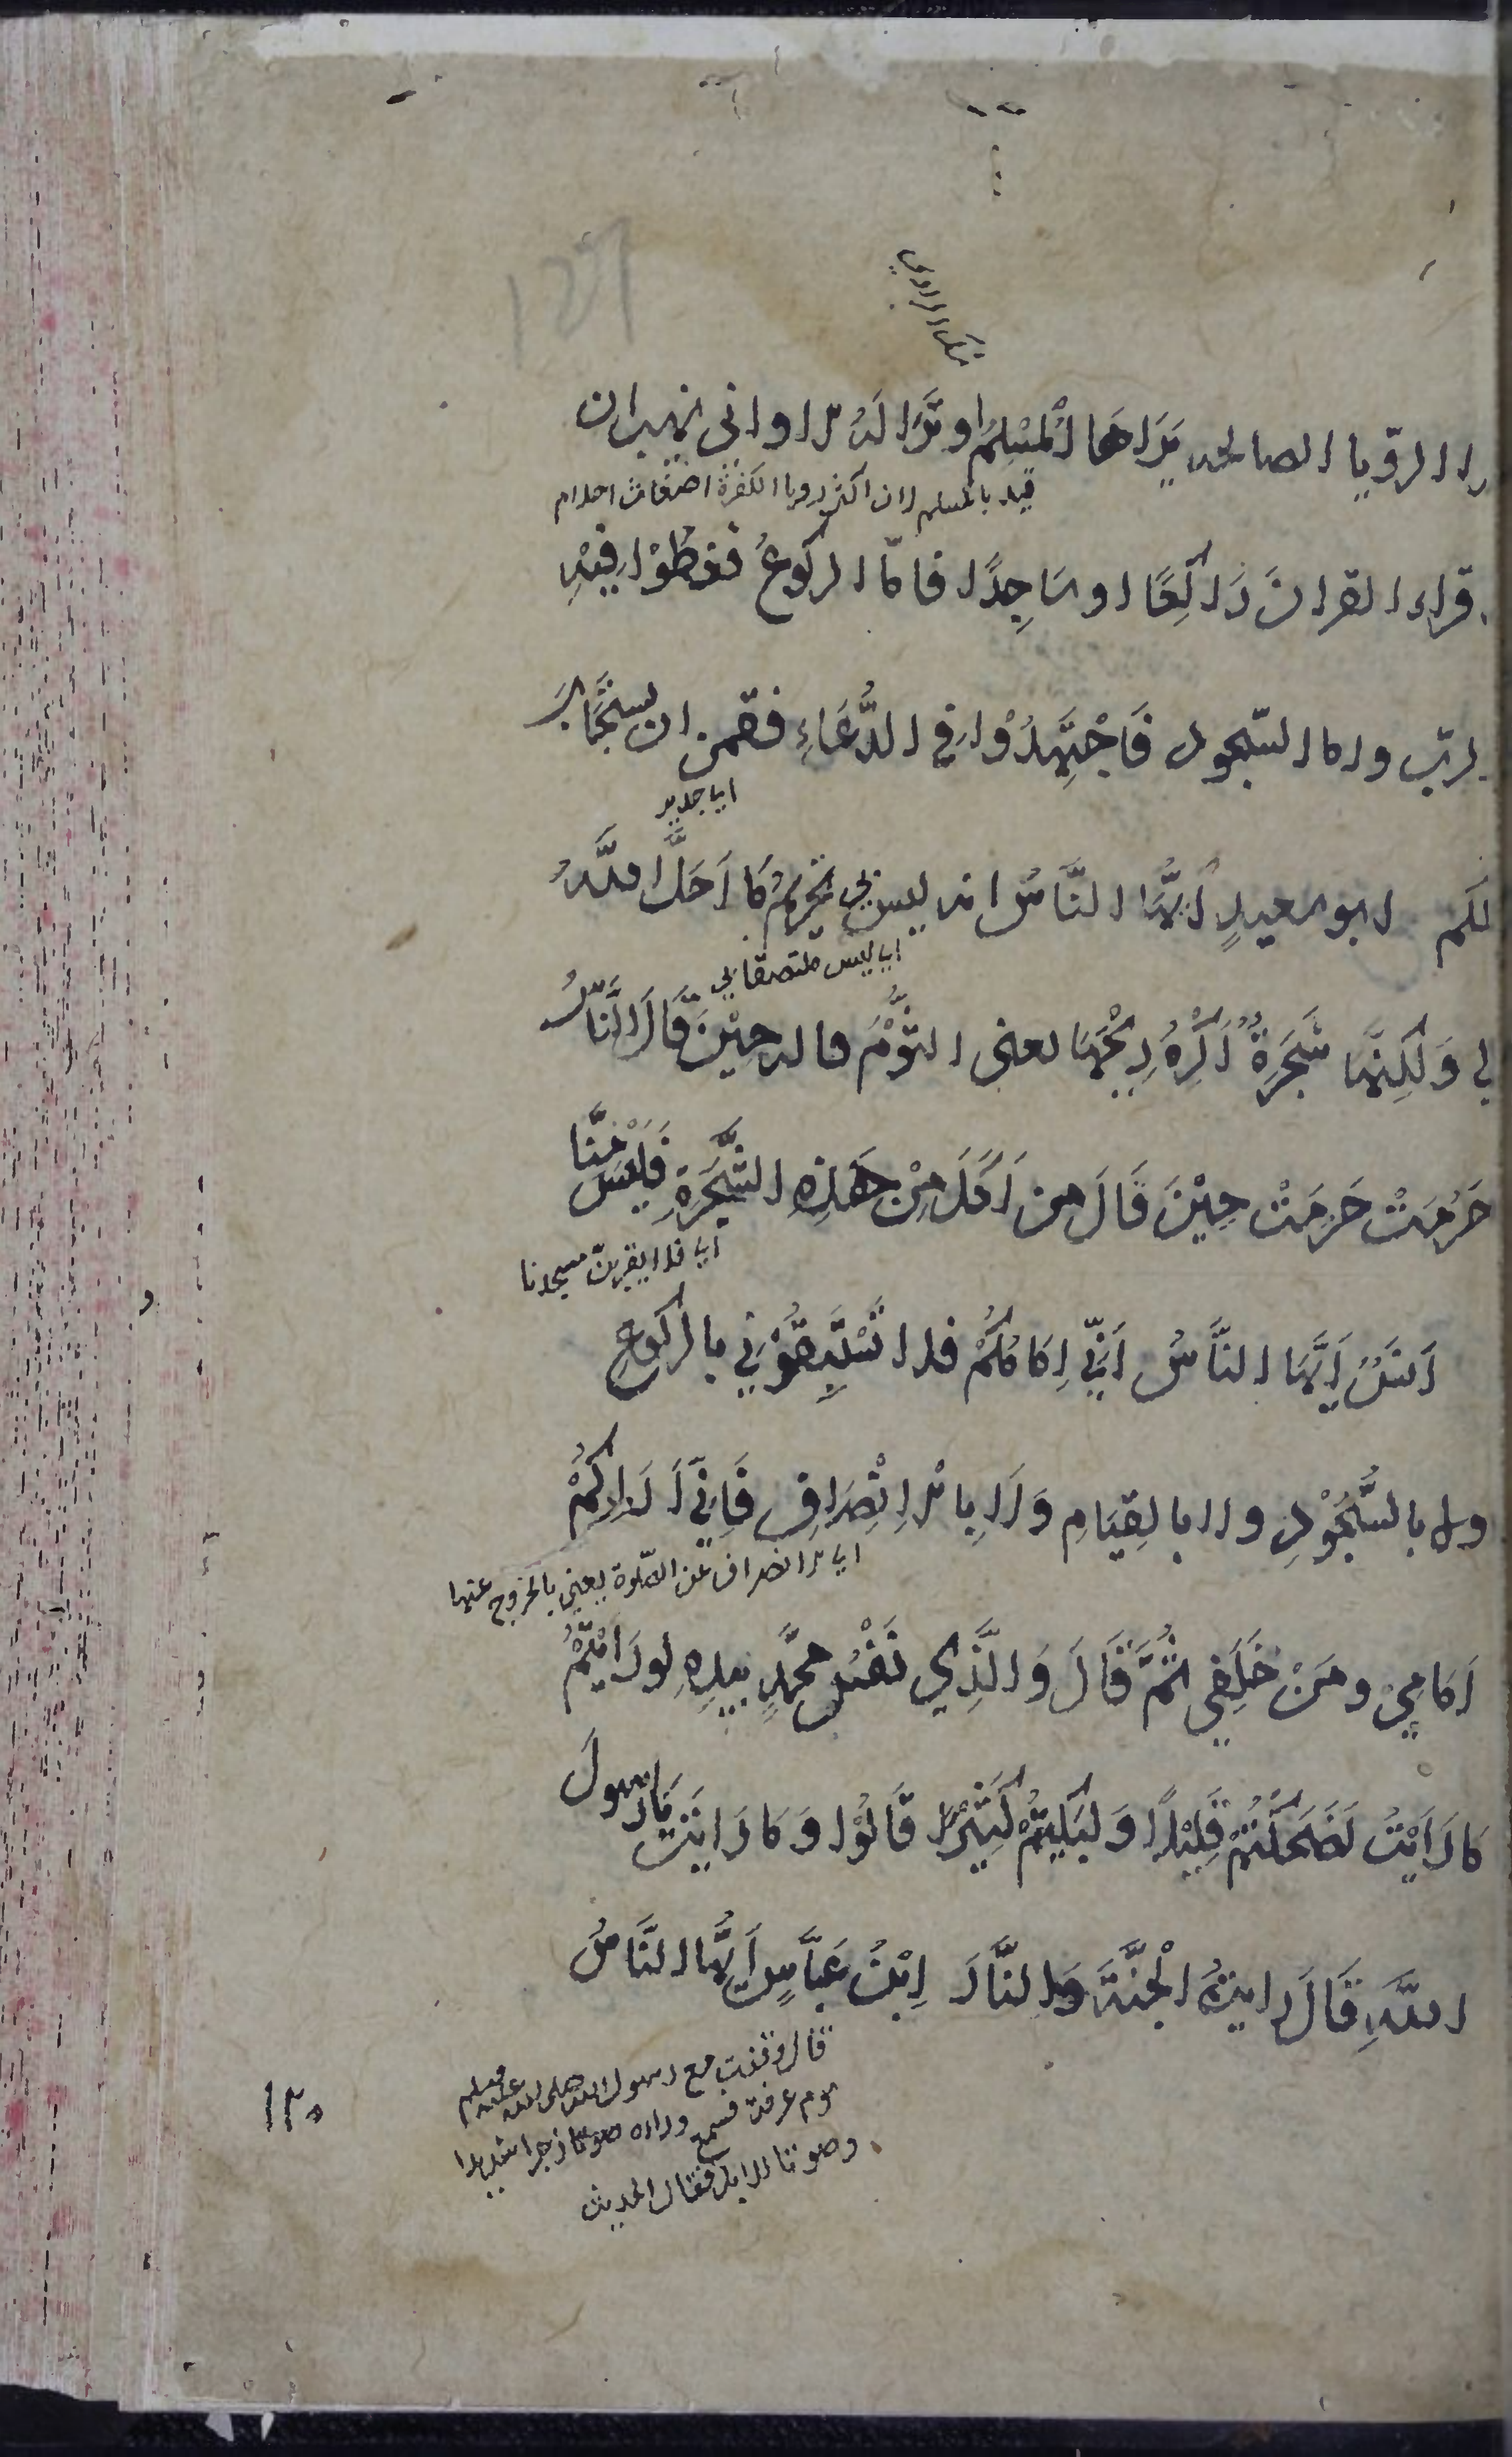 شك الراوي
الا الرؤيا الصالحه يَرَاهَا الْمُسْلِمُ او تُرَا لَهُ الا واني نهيت ان
قيد بالمسلم لان اكثر رويا الكفرة اضغاث احلام
اقراء القرانَ رَاكِعًا او سَاجِدًا فامّا الركوعُ فعظّمُوْا فِيْهِ
الربّ واما السّجود فَاجْتَهِدُوْا فِي الدُّعَاءِ فقمن ان يستجَابَ
اي جدير
لكم ابو سعيدٍ اَيُّهَا النَّاسُ انه ليس بي تحريمُ مَا اَحَلَّ اللَّهُ
اي ليس ملتصقا بي
لي وَلكِنَّهَا شَجَرَةٌ اَكْرَهُ رِيْحَهَا يعني الثُّوْمَ قاله حِيْنَ قَالَ النَّاسُ
حَرُمَتْ حَرُمَتْ حِيْنَ قَالَ من اَكَلَ مِنْ هَذِهِ الشَّجَرَةِ فَلَيْسَ مِنَّا
اي فلا يقربنّ مسجدنا
اَنَسٌ اَيُّهَا النَّاسُ اِنِّي اِمَامُكُمْ فلا تَسْبِقُوْنِي بالركوعِ
ولا بالسُّجُوْدِ ولا بالقِيَامِ وَلَا بِالْاِنْصِرَافِ فَاِنِّي اَرَاكُمْ
اي بالانصراف عن الصّلوة يعني بالخروج عنها
اَمَامِيْ ومِنْ خَلْفِي ثُمَّ قَالَ وَالَّذِي نَفْسُ محمَّدٍ بيدِهِ لو رَاَيْتُمْ
مَا رَاَيْتُ لَضَحِكْتُمْ قَلِيْلًا وَلَبَكَيْتُمْ كَثِيْرًا قَالُوْا وَمَا رَايْتَ يَا رَسولَ
اللَّهِ قَالَ رايتُ الْجَنَّةَ وَالنَّارَ اِبْنُ عَبَّاسٍ اَيُّهَا النَّاسُ
قال وقفت مع رسول الله صلى الله عليه وسلم
يوم عرفة فسمع وراءه صوتا زجرا شديدا
وصوتا للابل فقال الحديث